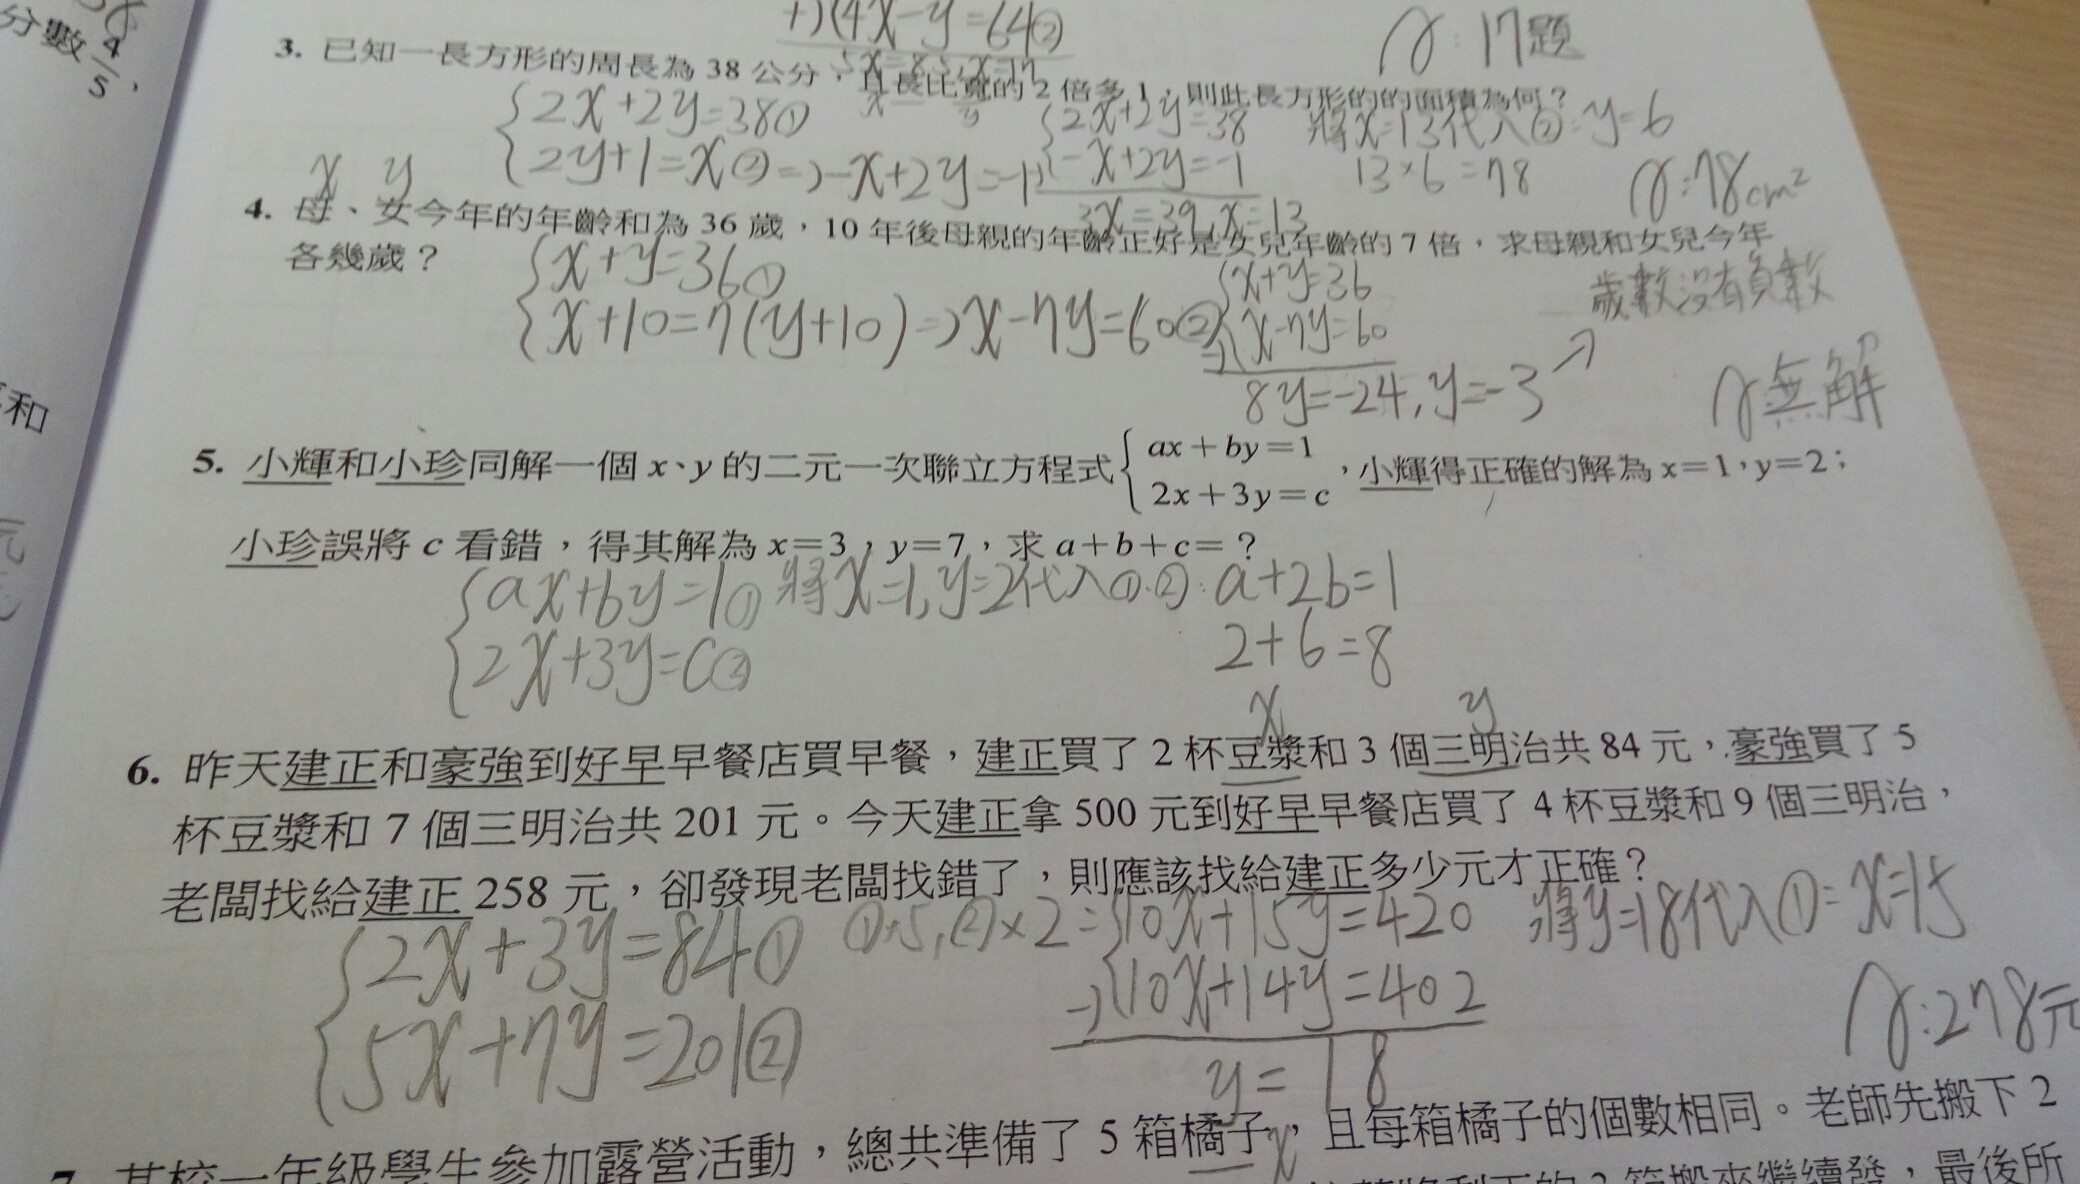 分數4/5,
+)(4x-y=64②
5x=85,x=17
A:17題
3. 已知一長方形的周長為 38 公分,且長比寬的 2 倍多 1,則此長方形的的面積為何?
x y
{2x+2y=38① {2x+2y=38 將x=13代入②:y=6
{2y+1=x②=>-x+2y=-1 -){-x+2y=-1 13×6=78 A:78cm²
3x=39,x=13
x y
4. 母、女今年的年齡和為 36 歲,10 年後母親的年齡正好是女兒年齡的 7 倍,求母親和女兒今年
各幾歲?
{x+y=36① {x+y=36 歲數沒有負數
{x+10=7(y+10)=>x-7y=60② -){x-7y=60
8y=-24,y=-3 A無解
和
5. 小輝和小珍同解一個 x、y 的二元一次聯立方程式{ax+by=1
2x+3y=c,小輝得正確的解為 x=1,y=2;
小珍誤將 c 看錯,得其解為 x=3,y=7,求 a+b+c=?
{ax+by=1① 將x=1,y=2代入①.②:a+2b=1
{2x+3y=c② 2+6=8
元
x y
6. 昨天建正和豪強到好早早餐店買早餐,建正買了 2 杯豆漿和 3 個三明治共 84 元,豪強買了 5
杯豆漿和 7 個三明治共 201 元。今天建正拿 500 元到好早早餐店買了 4 杯豆漿和 9 個三明治,
老闆找給建正 258 元,卻發現老闆找錯了,則應該找給建正多少元才正確?
{2x+3y=84① ①×5,②×2={10x+15y=420 將y=18代入①=x=15
{5x+7y=201② -){10x+14y=402 A:278元
y=18
7. 某校一年級學生參加露營活動,總共準備了 5 箱橘子,且每箱橘子的個數相同。老師先搬下 2
x
箱搬來繼續發,最後所